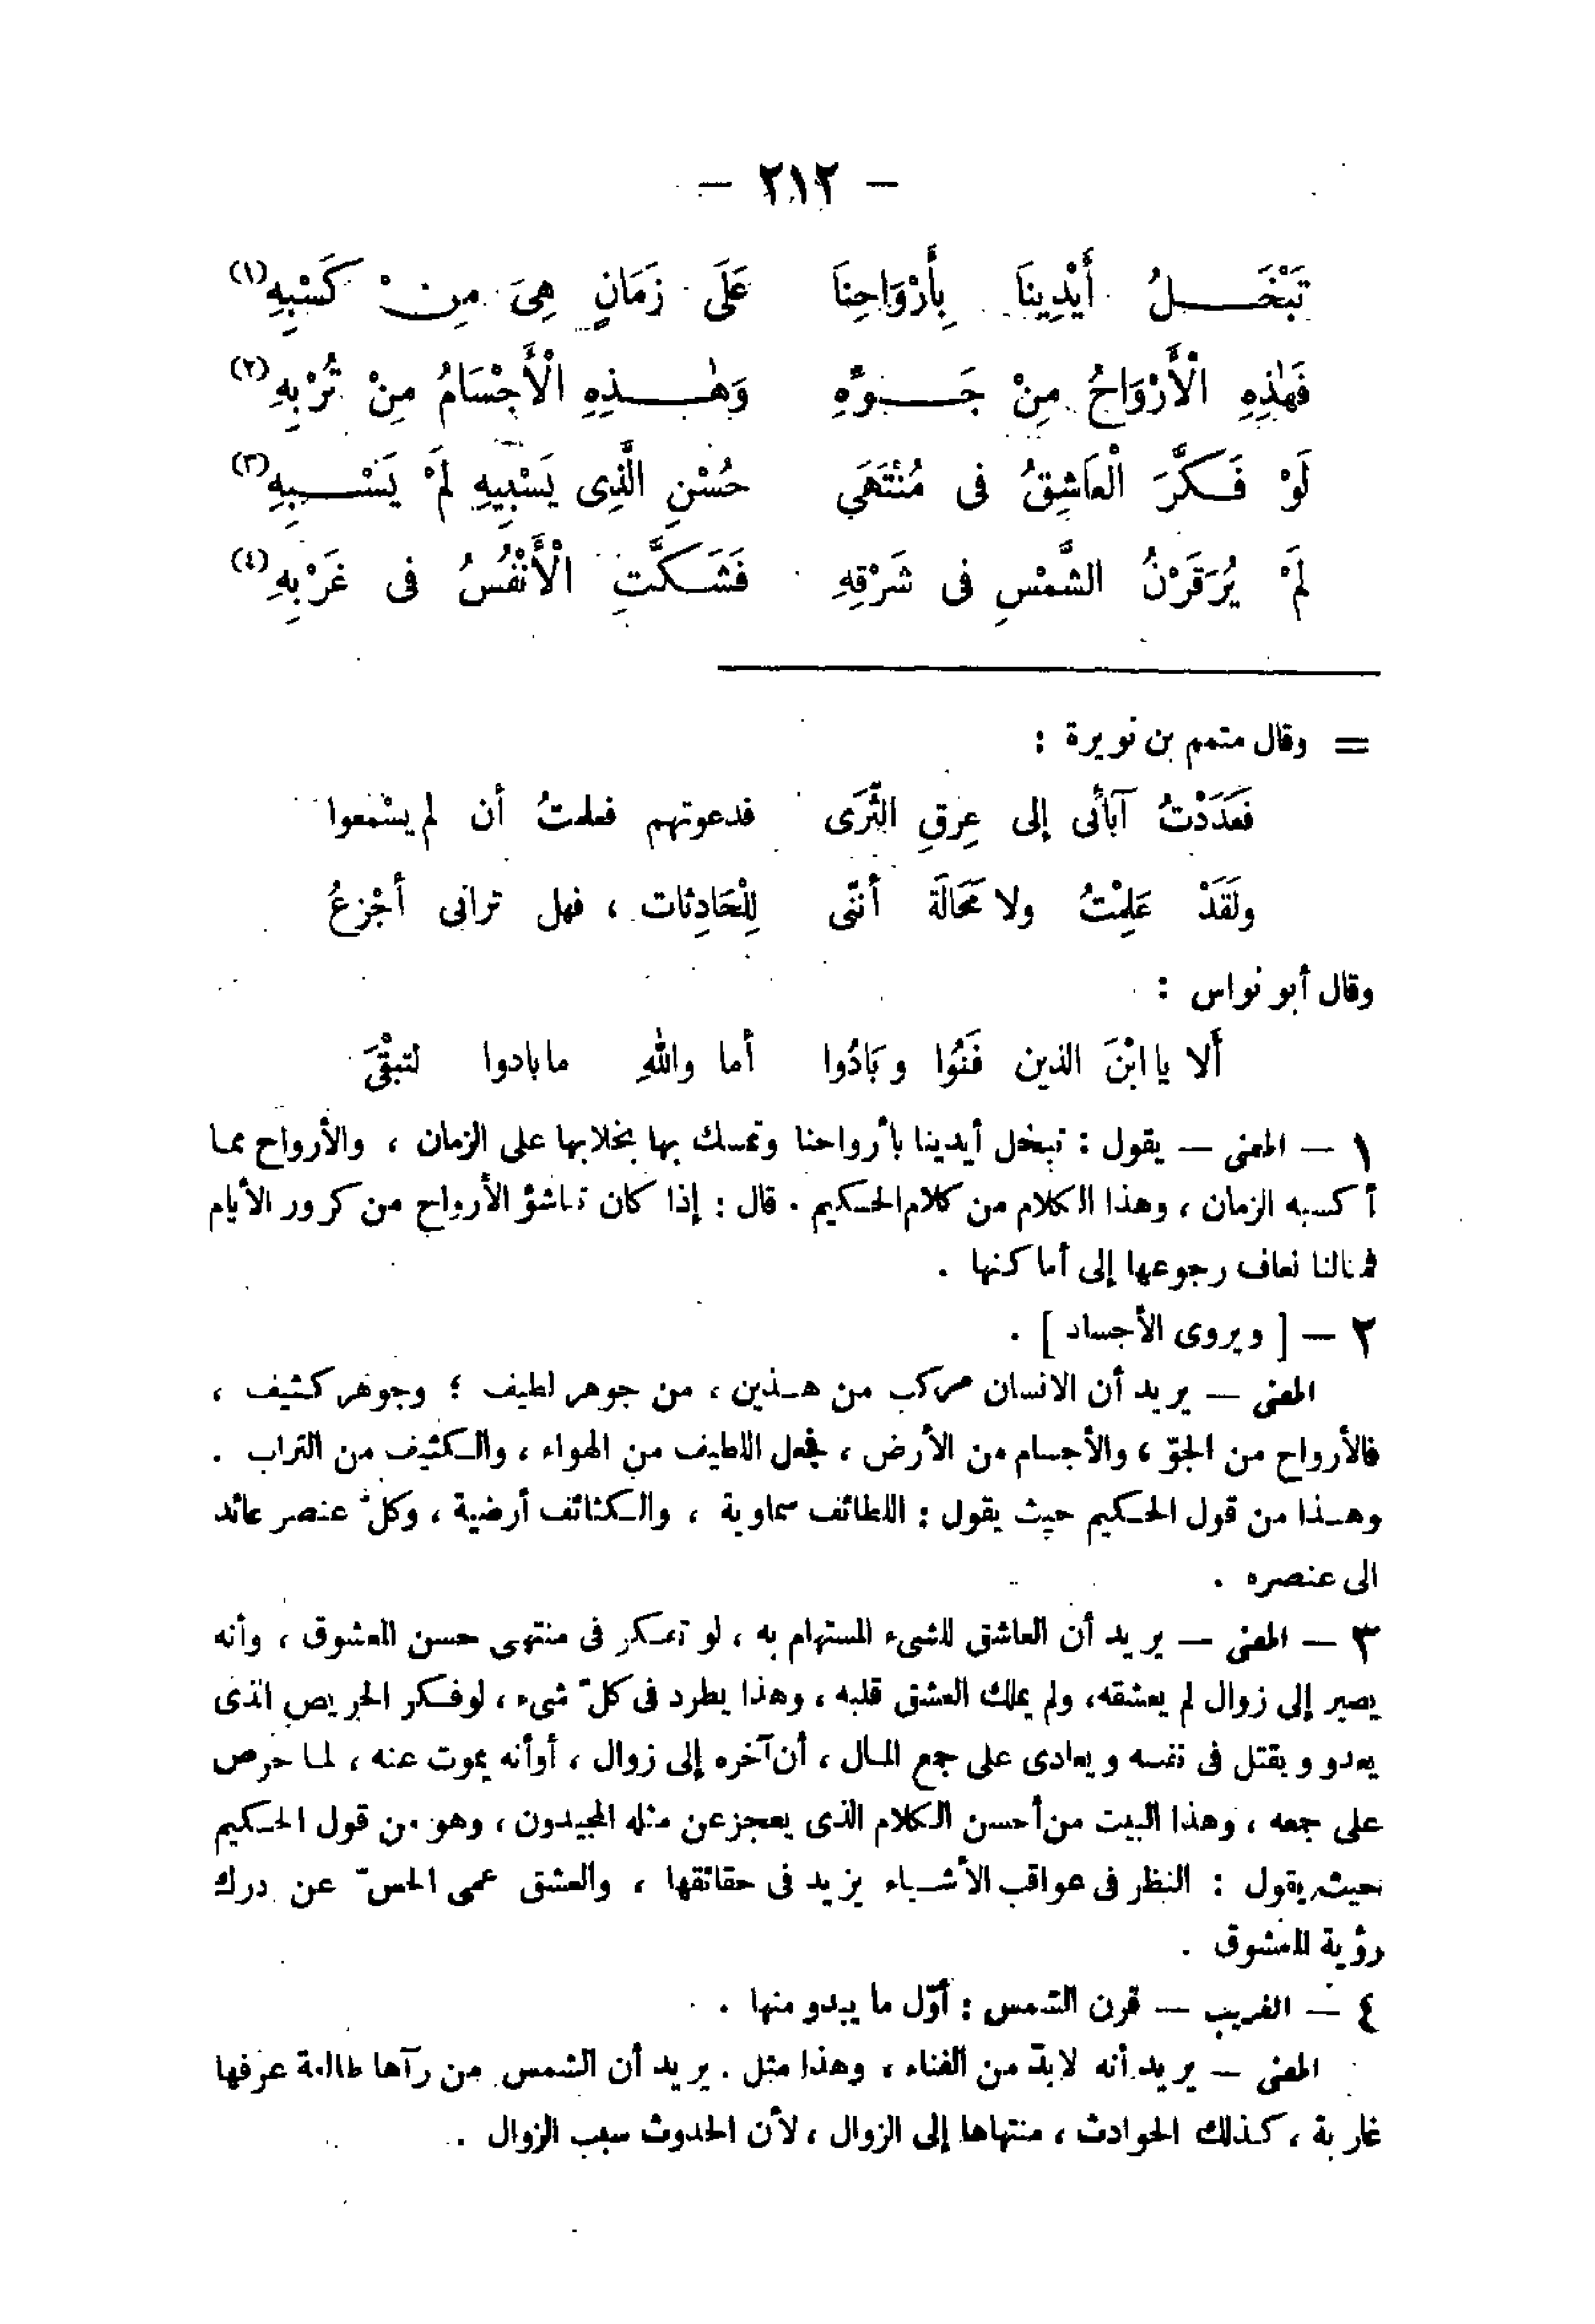 — ٢١٢ —
تَبْخَـــلُ أَيْدِينَا بِأَرْوَاحِنَا عَلَى زَمَانٍ هِىَ مِنْ كَسْبِهِ (١)
فَهٰذِهِ الْأَرْوَاحُ مِنْ جَـــوِّهِ وَهٰـــذِهِ الْأَجْسَامُ مِنْ تُرْبِهِ (٢)
لَوْ فَـكَّرَ الْعَاشِقُ فى مُنْتَهَى حُسْنِ الَّذِى يَسْبِيهِ لَمْ يَسْـــبِهِ (٣)
لَمْ يُرَ قَرْنُ الشَّمْسِ فى شَرْقِهِ فَشَـكَّتِ الْأَنْفُسُ فى غَرْبِهِ (٤)
= وقال متمم بن نويرة :
فَعَدَدْتُ آبائى إلى عِرقِ الثَّرَى فدعوتهم فعلمتُ أن لم يسْمعوا
ولَقَدْ عَلِمْتُ ولا مَحَالَةَ أننّى لِلْحَادِثات ، فهل ترانى أجْزعُ
وقال أبو نواس :
ألَا يا ابْنَ الذين فَنُوا وبَادُوا أما واللهِ مابادوا لتبْقَى
١ — المعنى — يقول : تبخل أيدينا بأرواحنا وتمسك بها بخلا بها على الزمان ، والأرواح مما
أكسبه الزمان ، وهذا الكلام من كلام الحـكيم . قال : إذا كان تناشؤ الأرواح من كرور الأيام
فمالنا نعاف رجوعها إلى أماكنها .
٢ — [ ويروى الأجساد ] .
المعنى — يريد أن الانسان مركب من هـذين ، من جوهر لطيف ؛ وجوهر كثيف ،
فالأرواح من الجوّ ، والأجسام من الأرض ، فجعل اللطيف من الهواء ، والـكثيف من التراب .
وهـذا من قول الحـكيم حيث يقول : اللطائف سماوية ، والـكثائف أرضية ، وكلّ عنصر عائد
الى عنصره .
٣ — المعنى — يريد أن العاشق للشىء المستهام به ، لو تفـكر فى منتهى حسن المعشوق ، وأنه
يصير إلى زوال لم يعشقه ، ولم يملك العشق قلبه ، وهذا يطرد فى كلّ شىء ، لوفـكر الحريص الذى
يعدو ويقتل فى نفسه ويعادى على جمع المـال ، أن آخره إلى زوال ، أوأنه يموت عنه ، لمـا حرص
على جمعه ، وهذا البيت من أحسن الـكلام الذى يعجز عن مثله المجيدون ، وهو من قول الحـكيم
حيث يقول : النظر فى عواقب الأشـياء يزيد فى حقائقها ، والعشق عمى الحسّ عن درك
رؤية المعشوق .
٤ — الغريب — قرن الشمس : أوّل ما يبدو منها .
المعنى — يريد أنه لابدّ من الفناء ، وهذا مثل . يريد أن الشمس من رآها طالعة عرفها
غاربة ، كـذلك الحوادث ، منتهاها إلى الزوال ، لأن الحدوث سبب الزوال .